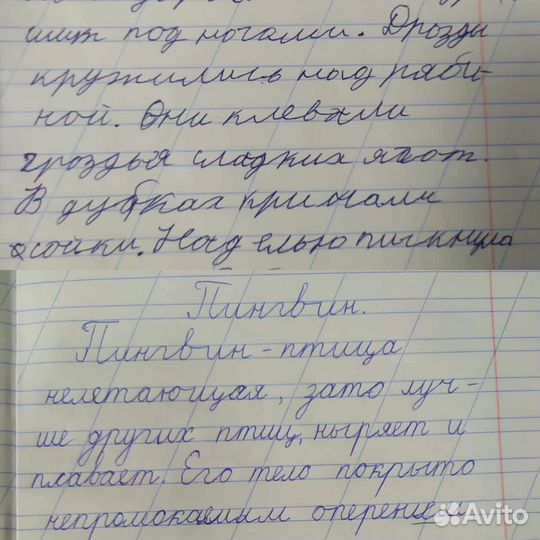 шит под ногами. Дрозды
кружились над ряби-
ной. Они клевали
гроздья сладких ягот.
В дубках кричали
сойки. Над елью пискнула
Пингвин.
Пингвин - птица
нелетающая, зато луч-
ше других птиц, ныряет и
плавает. Его тело покрыто
непромокаемым оперением
Avito